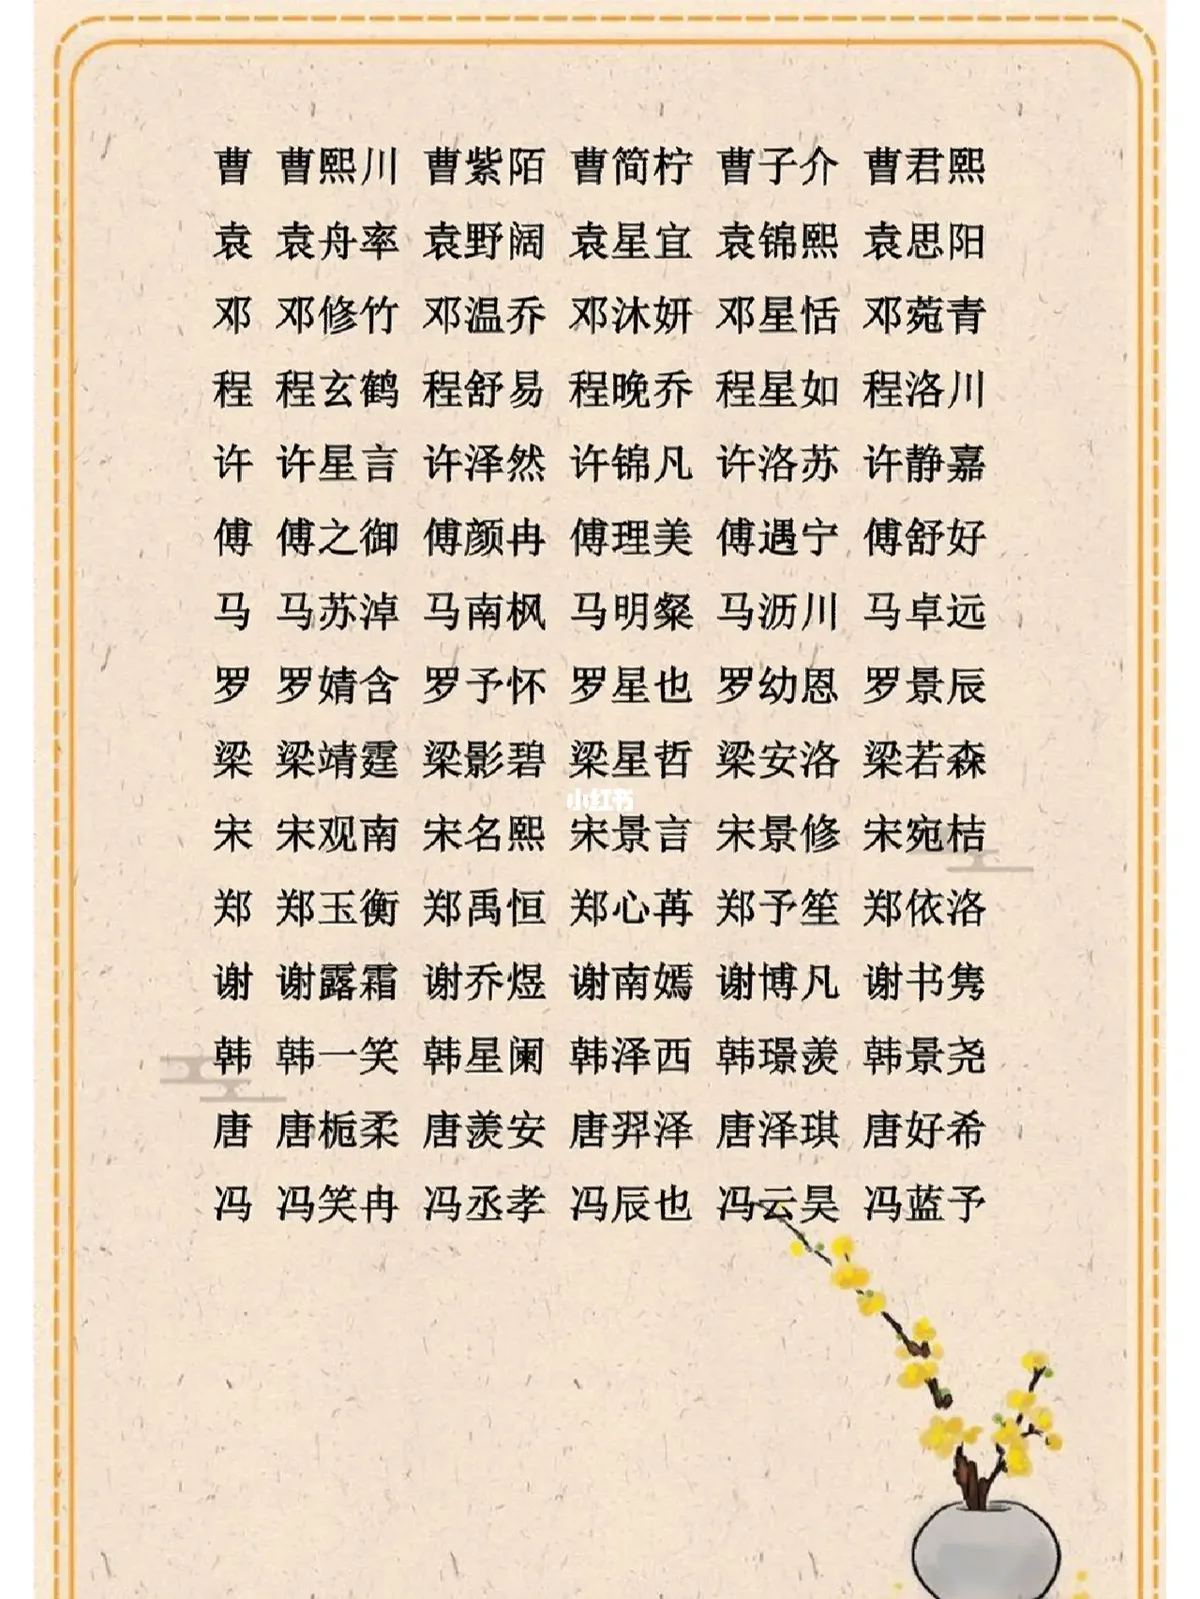 曹 曹熙川 曹紫陌 曹简柠 曹子介 曹君熙
袁 袁舟率 袁野阔 袁星宜 袁锦熙 袁思阳
邓 邓修竹 邓温乔 邓沐妍 邓星恬 邓菀青
程 程玄鹤 程舒易 程晚乔 程星如 程洛川
许 许星言 许泽然 许锦凡 许洛苏 许静嘉
傅 傅之御 傅颜冉 傅理美 傅遇宁 傅舒好
马 马苏淖 马南枫 马明粲 马沥川 马卓远
罗 罗婧含 罗予怀 罗星也 罗幼恩 罗景辰
梁 梁靖霆 梁影碧 梁星哲 梁安洛 梁若森
小红书
宋 宋观南 宋名熙 宋景言 宋景修 宋宛桔
郑 郑玉衡 郑禹恒 郑心苒 郑予笙 郑依洛
谢 谢露霜 谢乔煜 谢南嫣 谢博凡 谢书隽
韩 韩一笑 韩星阑 韩泽西 韩璟羡 韩景尧
唐 唐栀柔 唐羡安 唐羿泽 唐泽琪 唐好希
冯 冯笑冉 冯丞孝 冯辰也 冯云昊 冯蓝予